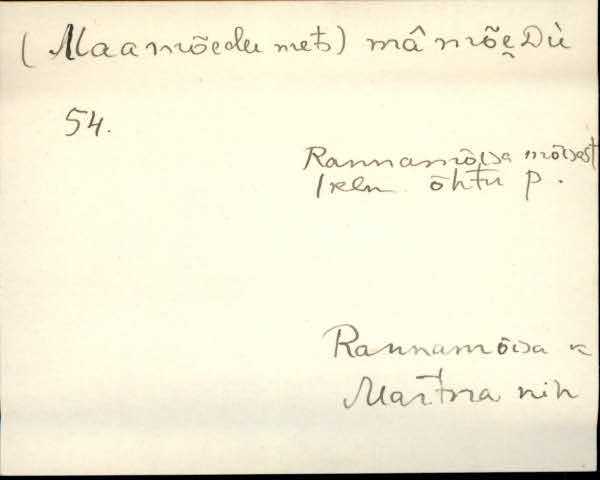 (Maamõedu mets) mâ mõe̮Dù
54.
Rannamõisa mõisast
1 klm õhtu p.
Rannamõisa k
Martna nih